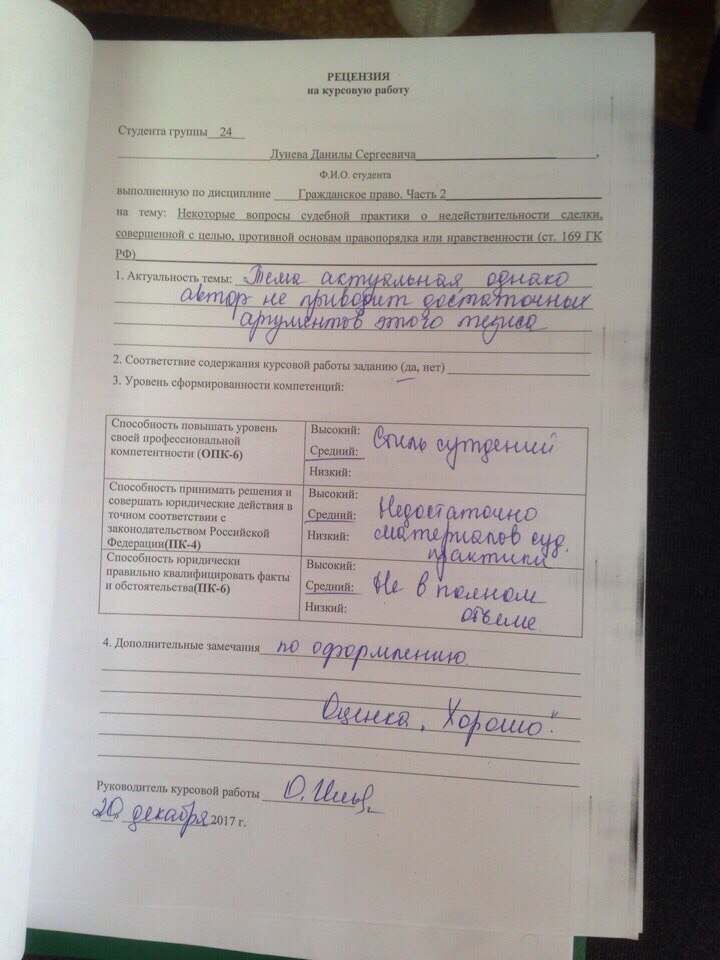 РЕЦЕНЗИЯ
на курсовую работу
Студента группы 24
Лунева Данилы Сергеевича,
Ф.И.О. студента
выполненную по дисциплине Гражданское право. Часть 2
на тему: Некоторые вопросы судебной практики о недействительности сделки,
совершенной с целью, противной основам правопорядка или нравственности (ст. 169 ГК
РФ)
1. Актуальность темы: Тема актуальная однако
автор не приводит достаточных
аргументов этого тезиса
2. Соответствие содержания курсовой работы заданию (да, нет)
3. Уровень сформированности компетенций:
Способность повышать уровень
своей профессиональной
компетентности (ОПК-6)
Высокий:
Средний:
Низкий:
Стиль суждений
Способность принимать решения и
совершать юридические действия в
точном соответствии с
законодательством Российской
Федерации(ПК-4)
Высокий:
Средний:
Низкий:
Недостаточно
материалов суд.
практики
Способность юридически
правильно квалифицировать факты
и обстоятельства(ПК-6)
Высокий:
Средний:
Низкий:
Не в полном
объеме
4. Дополнительные замечания по оформлению
Оценка „Хорошо".
Руководитель курсовой работы
20 декабря 2017 г.